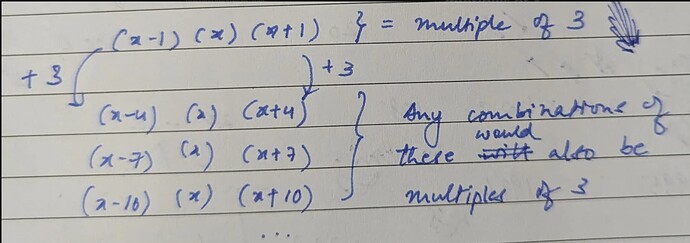 (x-1) (x) (x+1) } = multiple of 3
+3 +3
(x-4) (x) (x+4) Any combinations of
(x-7) (x) (x+7) these would also be
(x-10) (x) (x+10) multiples of 3
...